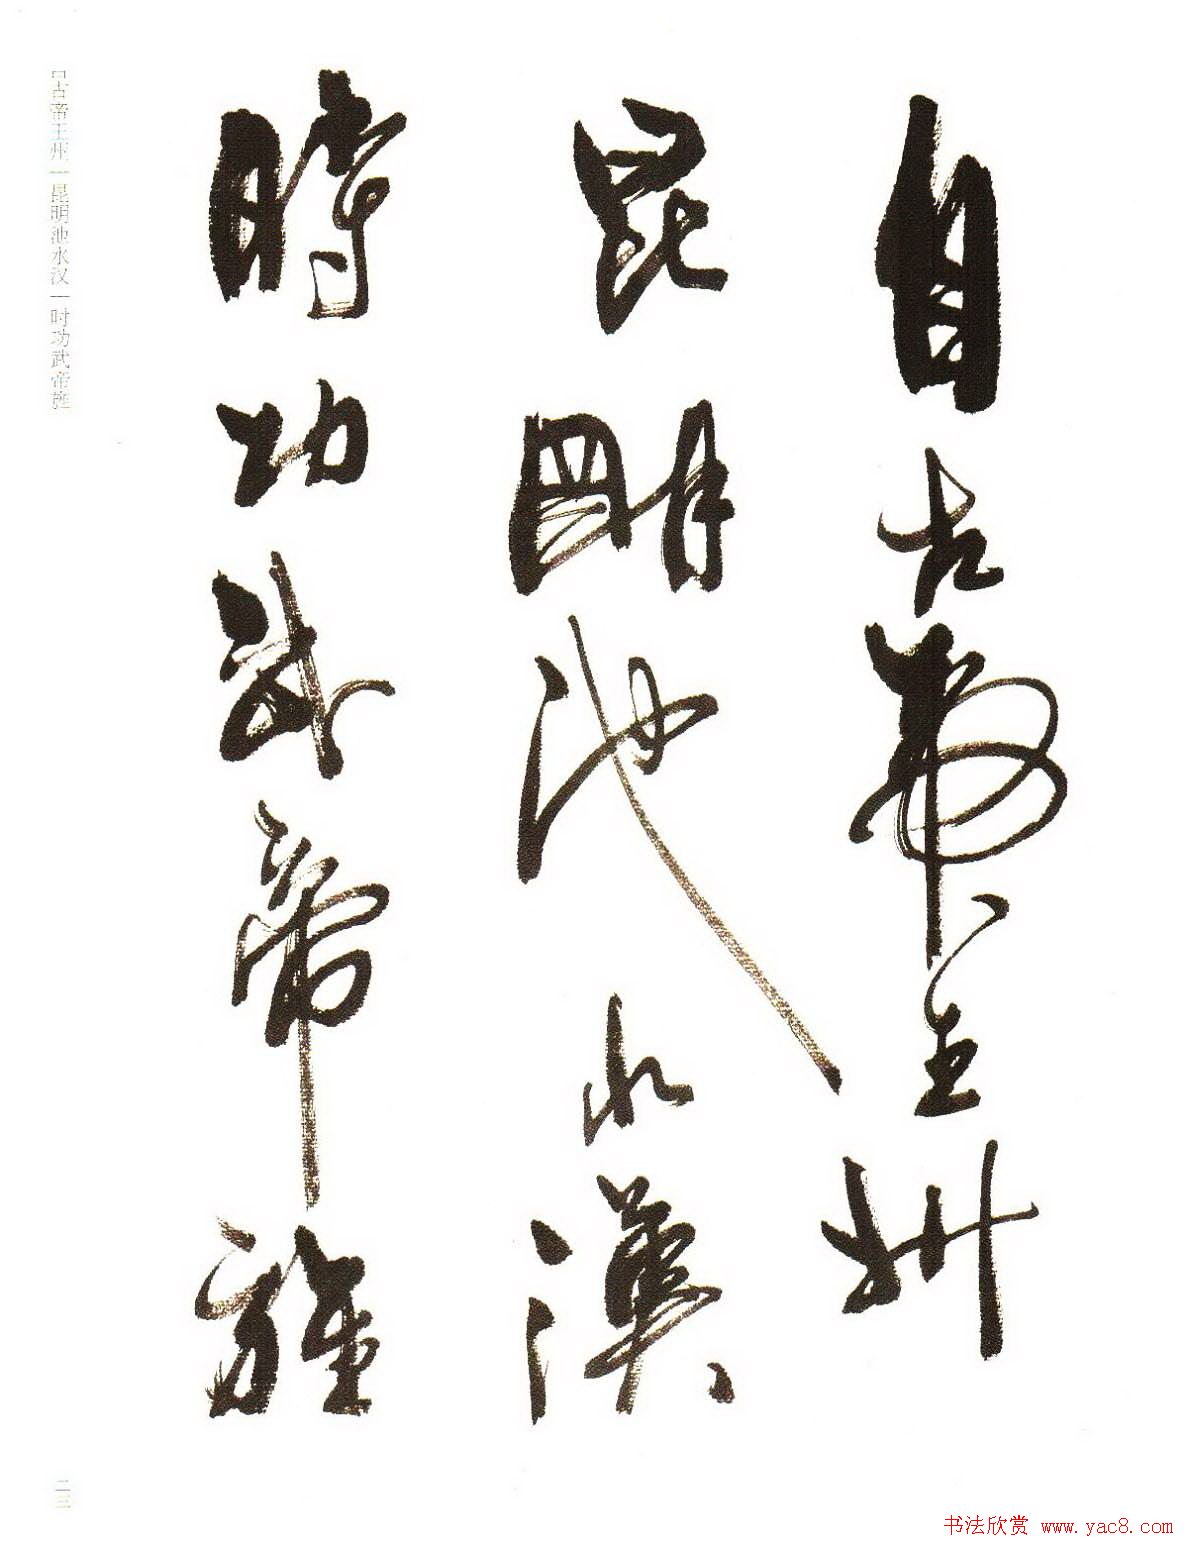 自古帝王州
昆明池水漢
時功武帝旌
自古帝王州一昆明池水汉一时功武帝旌
二三
书法欣赏 www.yac8.com